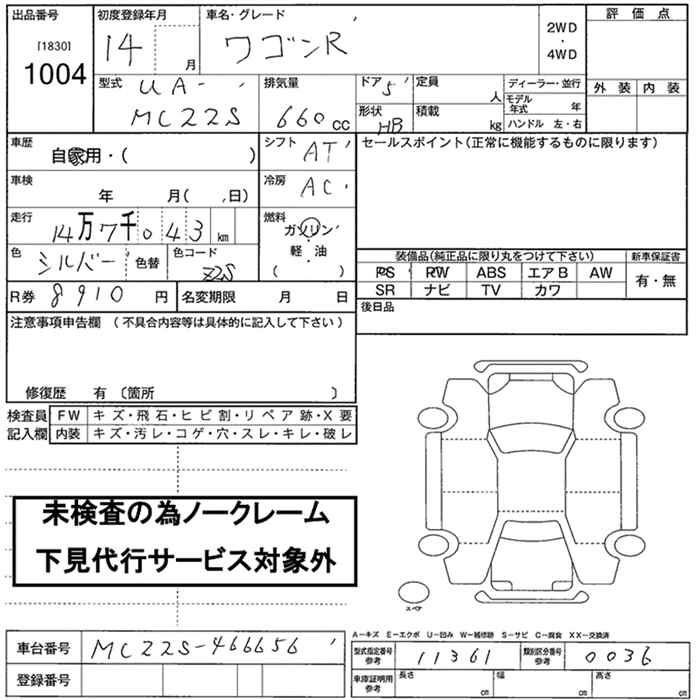 出品番号 初度登録年月 車名・グレード 評価点
[1830] 1004 14 月 ワゴンR 2WD・4WD
外装 内装
型式 UA- 排気量 ドア 5 定員 人 ディーラー・並行
MC22S 660 cc 形状 HB 積載 kg モデル年式 年
ハンドル 左・右
車歴 自家用・( ) シフト AT セールスポイント(正常に機能するものに限ります)
車検 年 月( 、日) 冷房 AC
走行 14万7千043 km 燃料 ガソリン・軽・油 ( )
色 シルバー 色替 色コード Z2S
装備品(純正品に限り丸をつけて下さい) 新車保証書
PS RW ABS エアB AW 有・無
SR ナビ TV カワ
R券 8910 円 名変期限 月 日 後日品
注意事項申告欄 (不具合内容等は具体的に記入して下さい)
修復歴 有 〔箇所 〕
検査員 FW キズ・飛石・ヒビ割・リペア跡・X要
記入欄 内装 キズ・汚レ・コゲ・穴・スレ・キレ・破レ
未検査の為ノークレーム
下見代行サービス対象外
スペア
A−キズ E−エクボ U−凹み W−補修跡 S−サビ C−腐食 XX−交換済
車台番号 MC22S-466656 型式指定番号 参考 11361 類別区分番号 参考 0036
登録番号 車庫証明用 参考 長さ cm 幅 cm 高さ cm